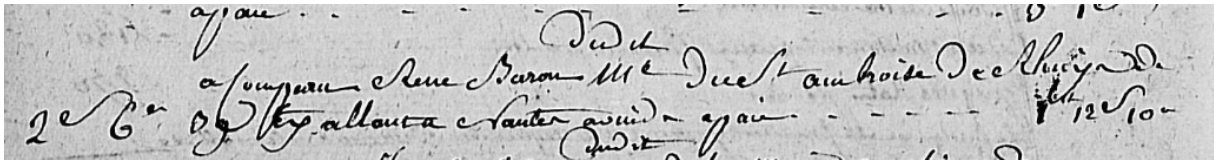 a paié
Dudit
a Comparu René Baron Me du St ambroise De Rhuÿs de
2s 6d 09 tx allant a Nantes avuide a paié - - - - - 1lt 12s 10d
Dudit